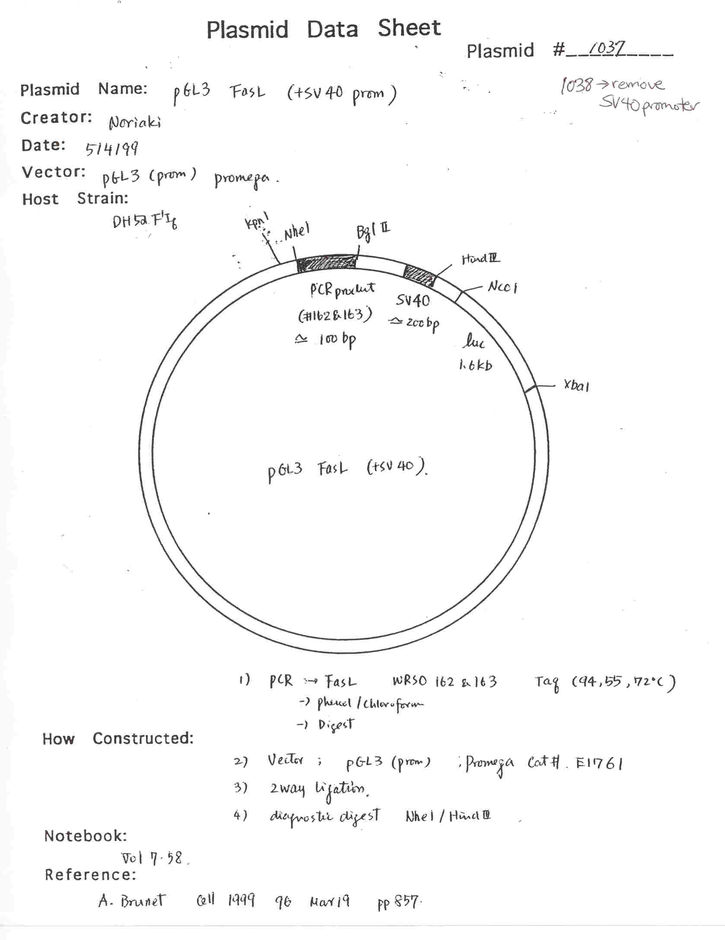 Plasmid Data Sheet
Plasmid #__1037____
1038→remove
SV40promoter
Plasmid Name: pGL3 FasL (+SV40 prom)
Creator: Noriaki
Date: 5/4/99
Vector: pGL3 (prom) promega.
Host Strain:
DH5α F'Iq
KpnI
NheI
Bgl II
Hind III
NcoI
PCR product
(#162&163)
≃ 100 bp
SV40
≃ 200 bp
luc
1.6kb
XbaI
pGL3 FasL (+SV40).
1) PCR → FasL WRSO 162 & 163 Taq (94,55,72°C)
→ Phenol/Chloroform
→ Digest
How Constructed:
2) Vector ; pGL3 (prom) ; Promega Cat#. E1761
3) 2way ligation.
4) diagnostic digest NheI/Hind III .
Notebook:
Vol 7-58.
Reference:
A. Brunet Cell 1999 96 Mar19 pp 857.